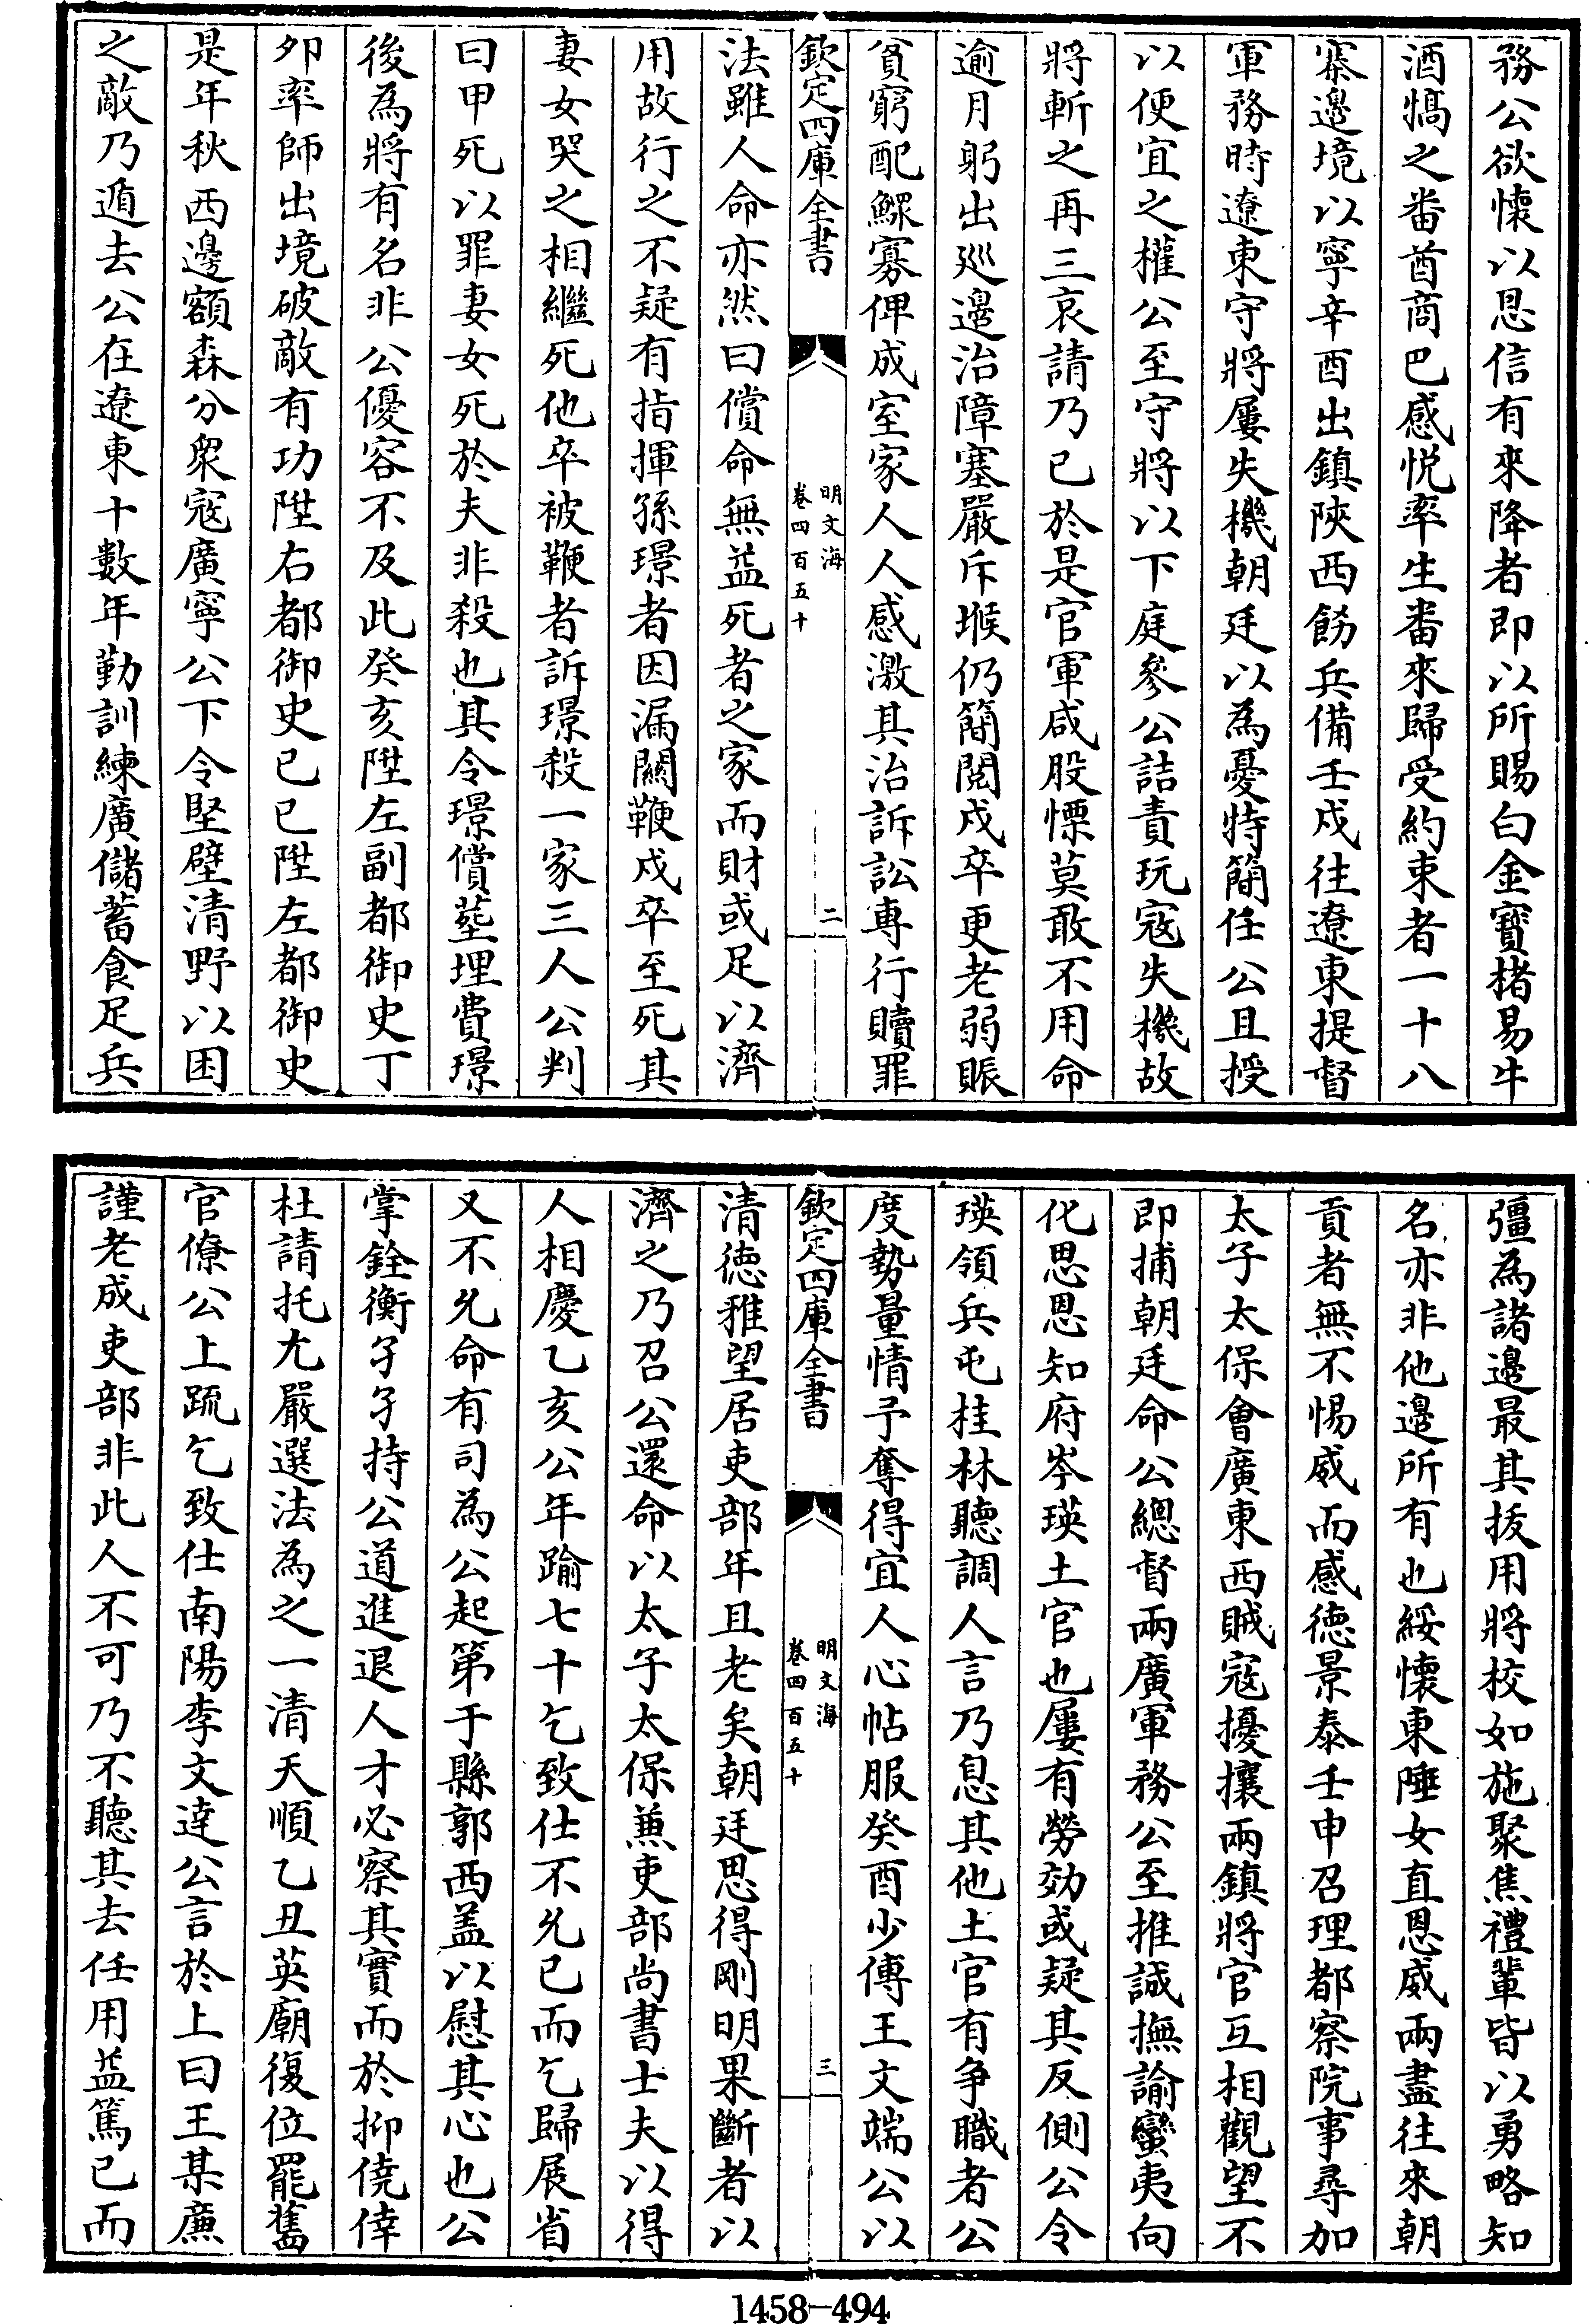 務公欲懷以恩信有來降者即以所賜白金寳楮易牛
酒犒之畨酋商巴感悦率生畨來歸受約束者一十八
寨邊境以寧辛酉出鎮陜西飭兵備壬戍往遼東提督
軍務時遼東守將屢失機朝廷以為憂特簡任公且授
以便宜之權公至守將以下庭參公詰責玩寇失機故
將斬之再三哀請乃已於是官軍咸股慄莫敢不用命
逾月躬出廵邊治障塞嚴斥堠仍簡閲戍卒更老弱賑
貧窮配鰥寡俾成室家人人感激其治訴訟専行贖罪
欽定四庫全書
明文海
卷四百五十
二
法雖人命亦然曰償命無益死者之家而財或足以濟
用故行之不疑有指揮孫璟者因漏關鞭戍卒至死其
妻女哭之相繼死他卒被鞭者訴璟殺一家三人公判
曰甲死以罪妻女死於夫非殺也其令璟償塟埋費璟
後為將有名非公優容不及此癸亥陞左副都御史丁
夘率師出境破敵有功陞右都御史已巳陞左都御史
是年秋西邊額森分衆寇廣寧公下令堅壁清野以困
之敵乃遁去公在遼東十數年勤訓練廣儲蓄食足兵
彊為諸邊最其拔用將校如施聚焦禮輩皆以勇略知
名亦非他邊所有也綏懷東陲女直恩威兩盡往來朝
貢者無不惕威而感徳景泰壬申召理都察院事尋加
太子太保會廣東西賊寇擾攘兩鎮將官互相觀望不
即捕朝廷命公總督兩廣軍務公至推誠撫諭蠻夷向
化思恩知府岑瑛土官也屢有勞効或疑其反側公令
瑛領兵屯桂林聽調人言乃息其他土官有争職者公
度勢量情予奪得宜人心帖服癸酉少傅王文端公以
欽定四庫全書
明文海
卷四百五十
三
清徳雅望居吏部年且老矣朝廷思得剛明果斷者以
濟之乃召公還命以太子太保兼吏部尚書士夫以得
人相慶乙亥公年踰七十乞致仕不允已而乞歸展省
又不允命有司為公起第于縣郭西盖以慰其心也公
掌銓衡孑孑持公道進退人才必察其實而於抑僥倖
杜請托尤嚴選法為之一清天順乙丑英廟復位罷舊
官僚公上疏乞致仕南陽李文逹公言於上曰王某亷
謹老成吏部非此人不可乃不聽其去任用益篤已而
1458-494